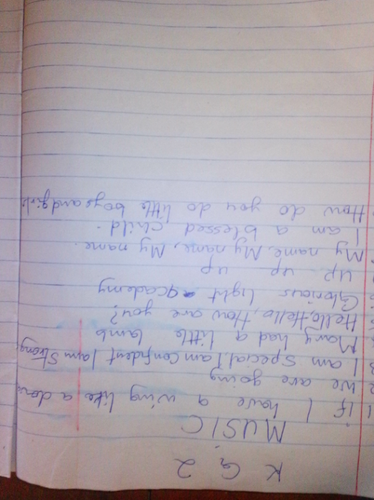 K G 2
MUSIC
1 If I have a wing like a dove
2 We are going
3 I am Special I am Confident I am Strong
Mary had a little lamb
Hello, Hello, How are you?
Glorious light academy
up up up
My name, My name, My name.
I am a blessed child.
How do you do little boys and girls